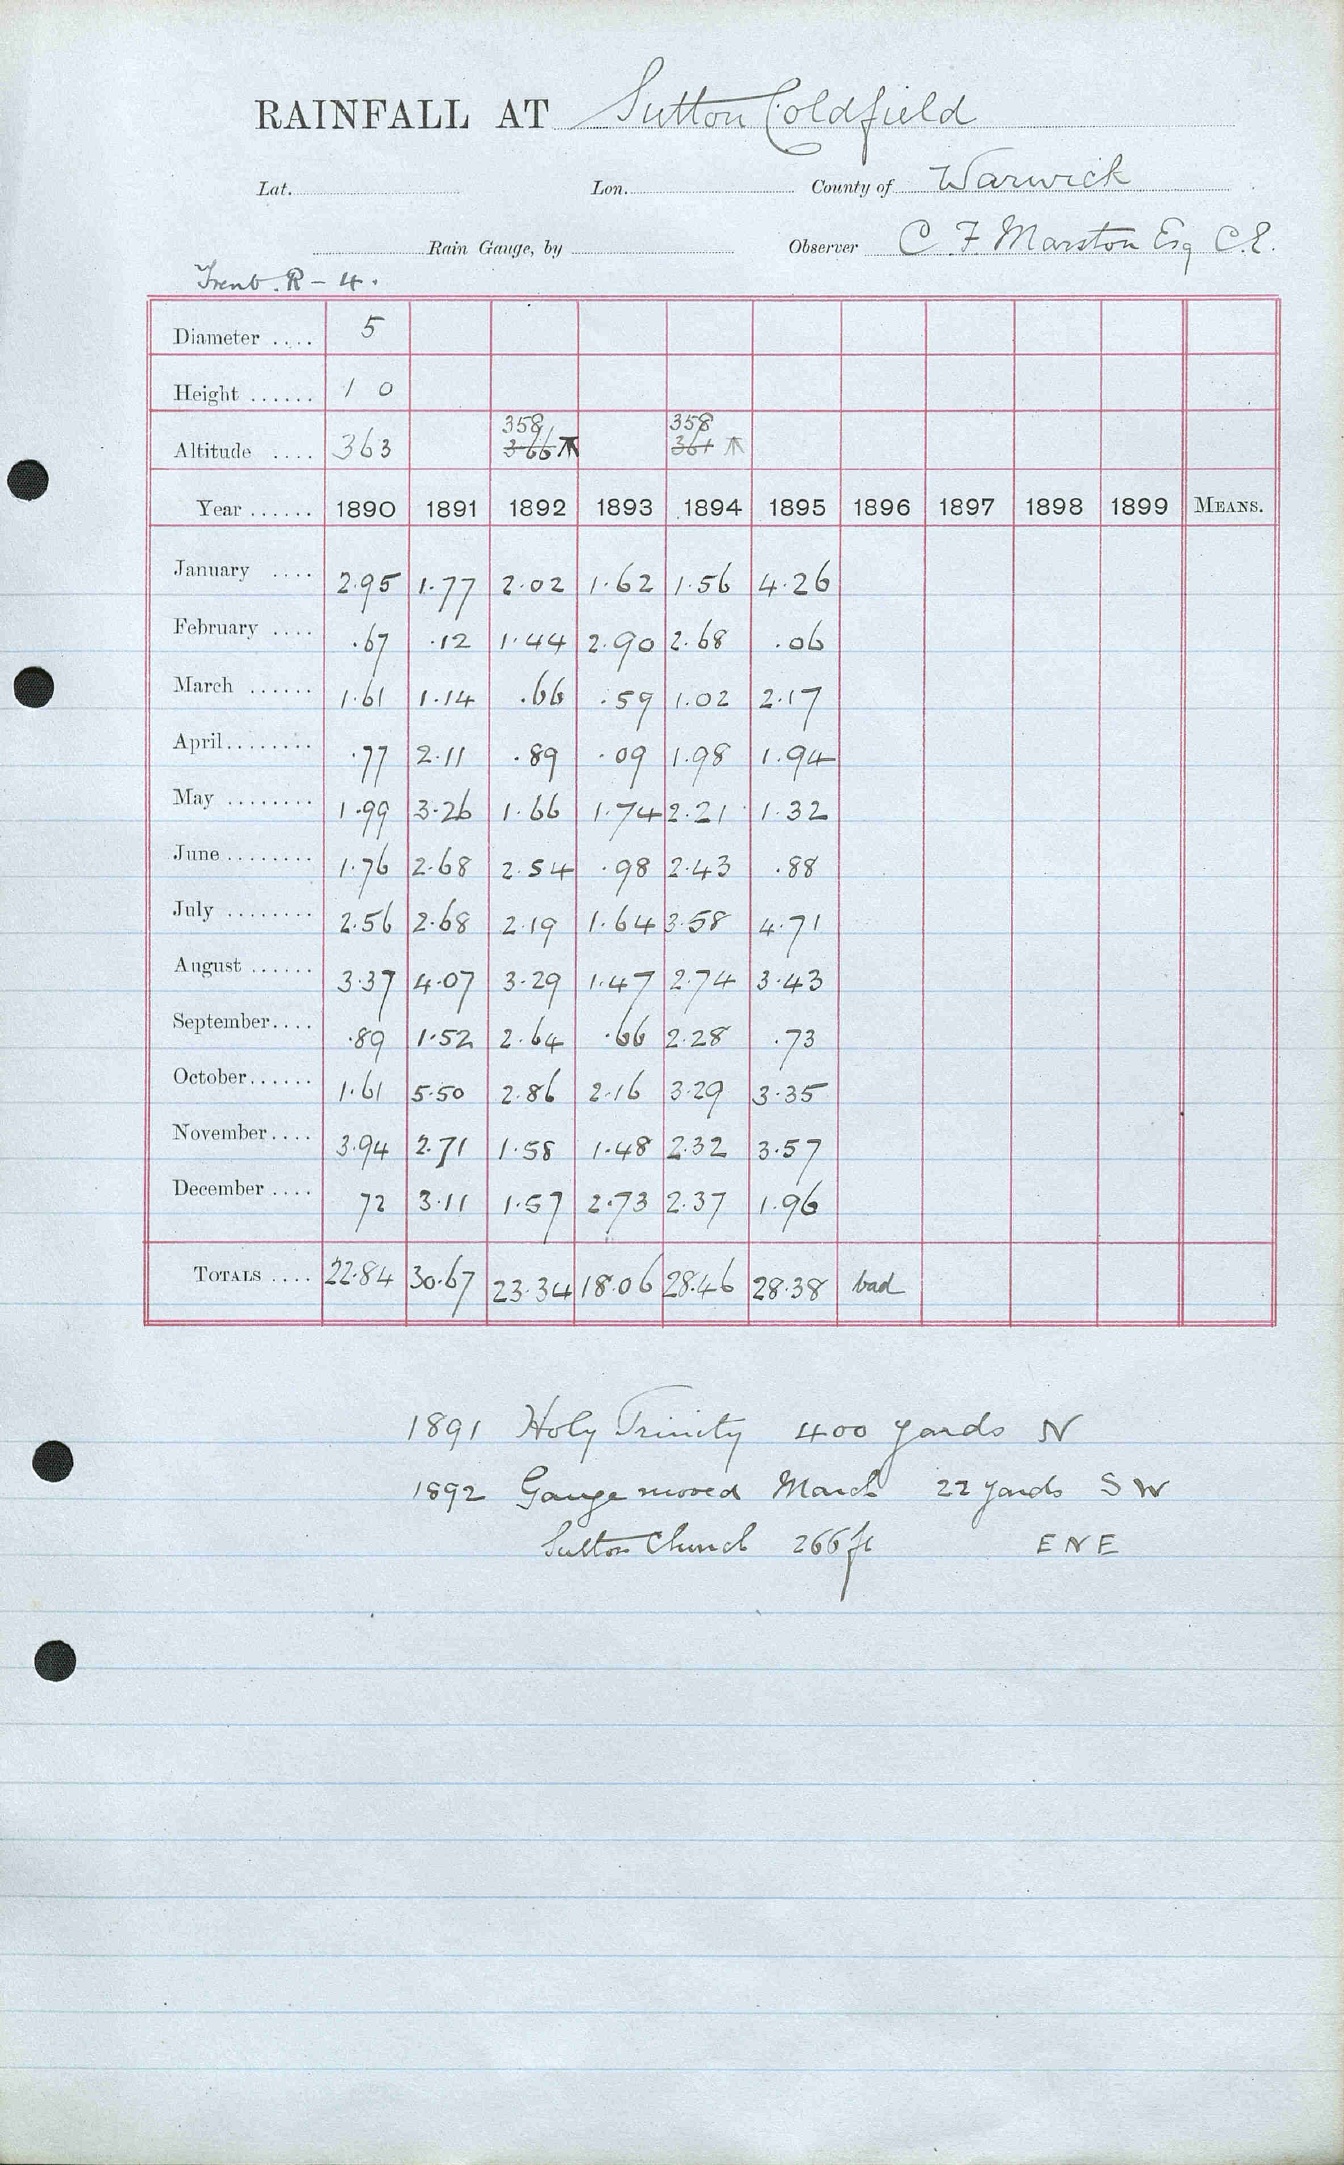 RAINFALL AT Sutton Coldfield
Lat. Lon. County of Warwick
Rain Gauge, by Observer C. F. Marston Esq C.E.
Trent. R - 4.
Diameter .... 5
Height ...... 1 0
Altitude .... 363 358 366 358 361
Year ...... 1890 1891 1892 1893 1894 1895 1896 1897 1898 1899 MEANS.
January .... 2.95 1.77 2.02 1.62 1.56 4.26
February .... .67 .12 1.44 2.90 2.68 .06
March ...... 1.61 1.14 .66 .59 1.02 2.17
April........ .77 2.11 .89 .09 1.98 1.94
May ........ 1.99 3.26 1.66 1.74 2.21 1.32
June ........ 1.76 2.68 2.54 .98 2.43 .88
July ........ 2.56 2.68 2.19 1.64 3.58 4.71
August ...... 3.37 4.07 3.29 1.47 2.74 3.43
September.... .89 1.52 2.64 .66 2.28 .73
October...... 1.61 5.50 2.86 2.16 3.29 3.35
November.... 3.94 2.71 1.58 1.48 2.32 3.57
December .... 72 3.11 1.57 2.73 2.37 1.96
TOTALS .... 22.84 30.67 23.34 18.06 28.46 28.38 bad
1891 Holy Trinity 400 yards N
1892 Gauge moved March 22 yards S W
Sutton Church 266 ft E N E